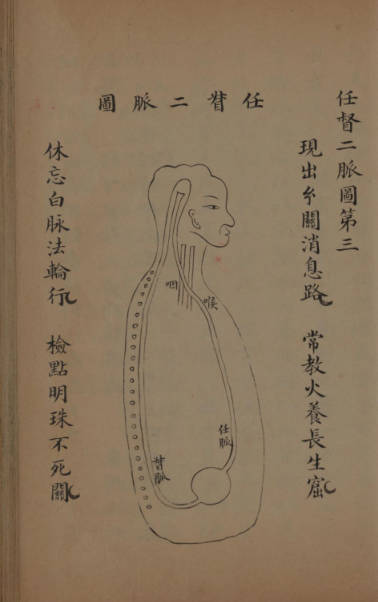 任督二脈圖第三
現出關消息路 常教火養長生窟
任督二脈圖
咽
喉
任脈
督脈
休忘白脉法輪行 檢點明珠不死關